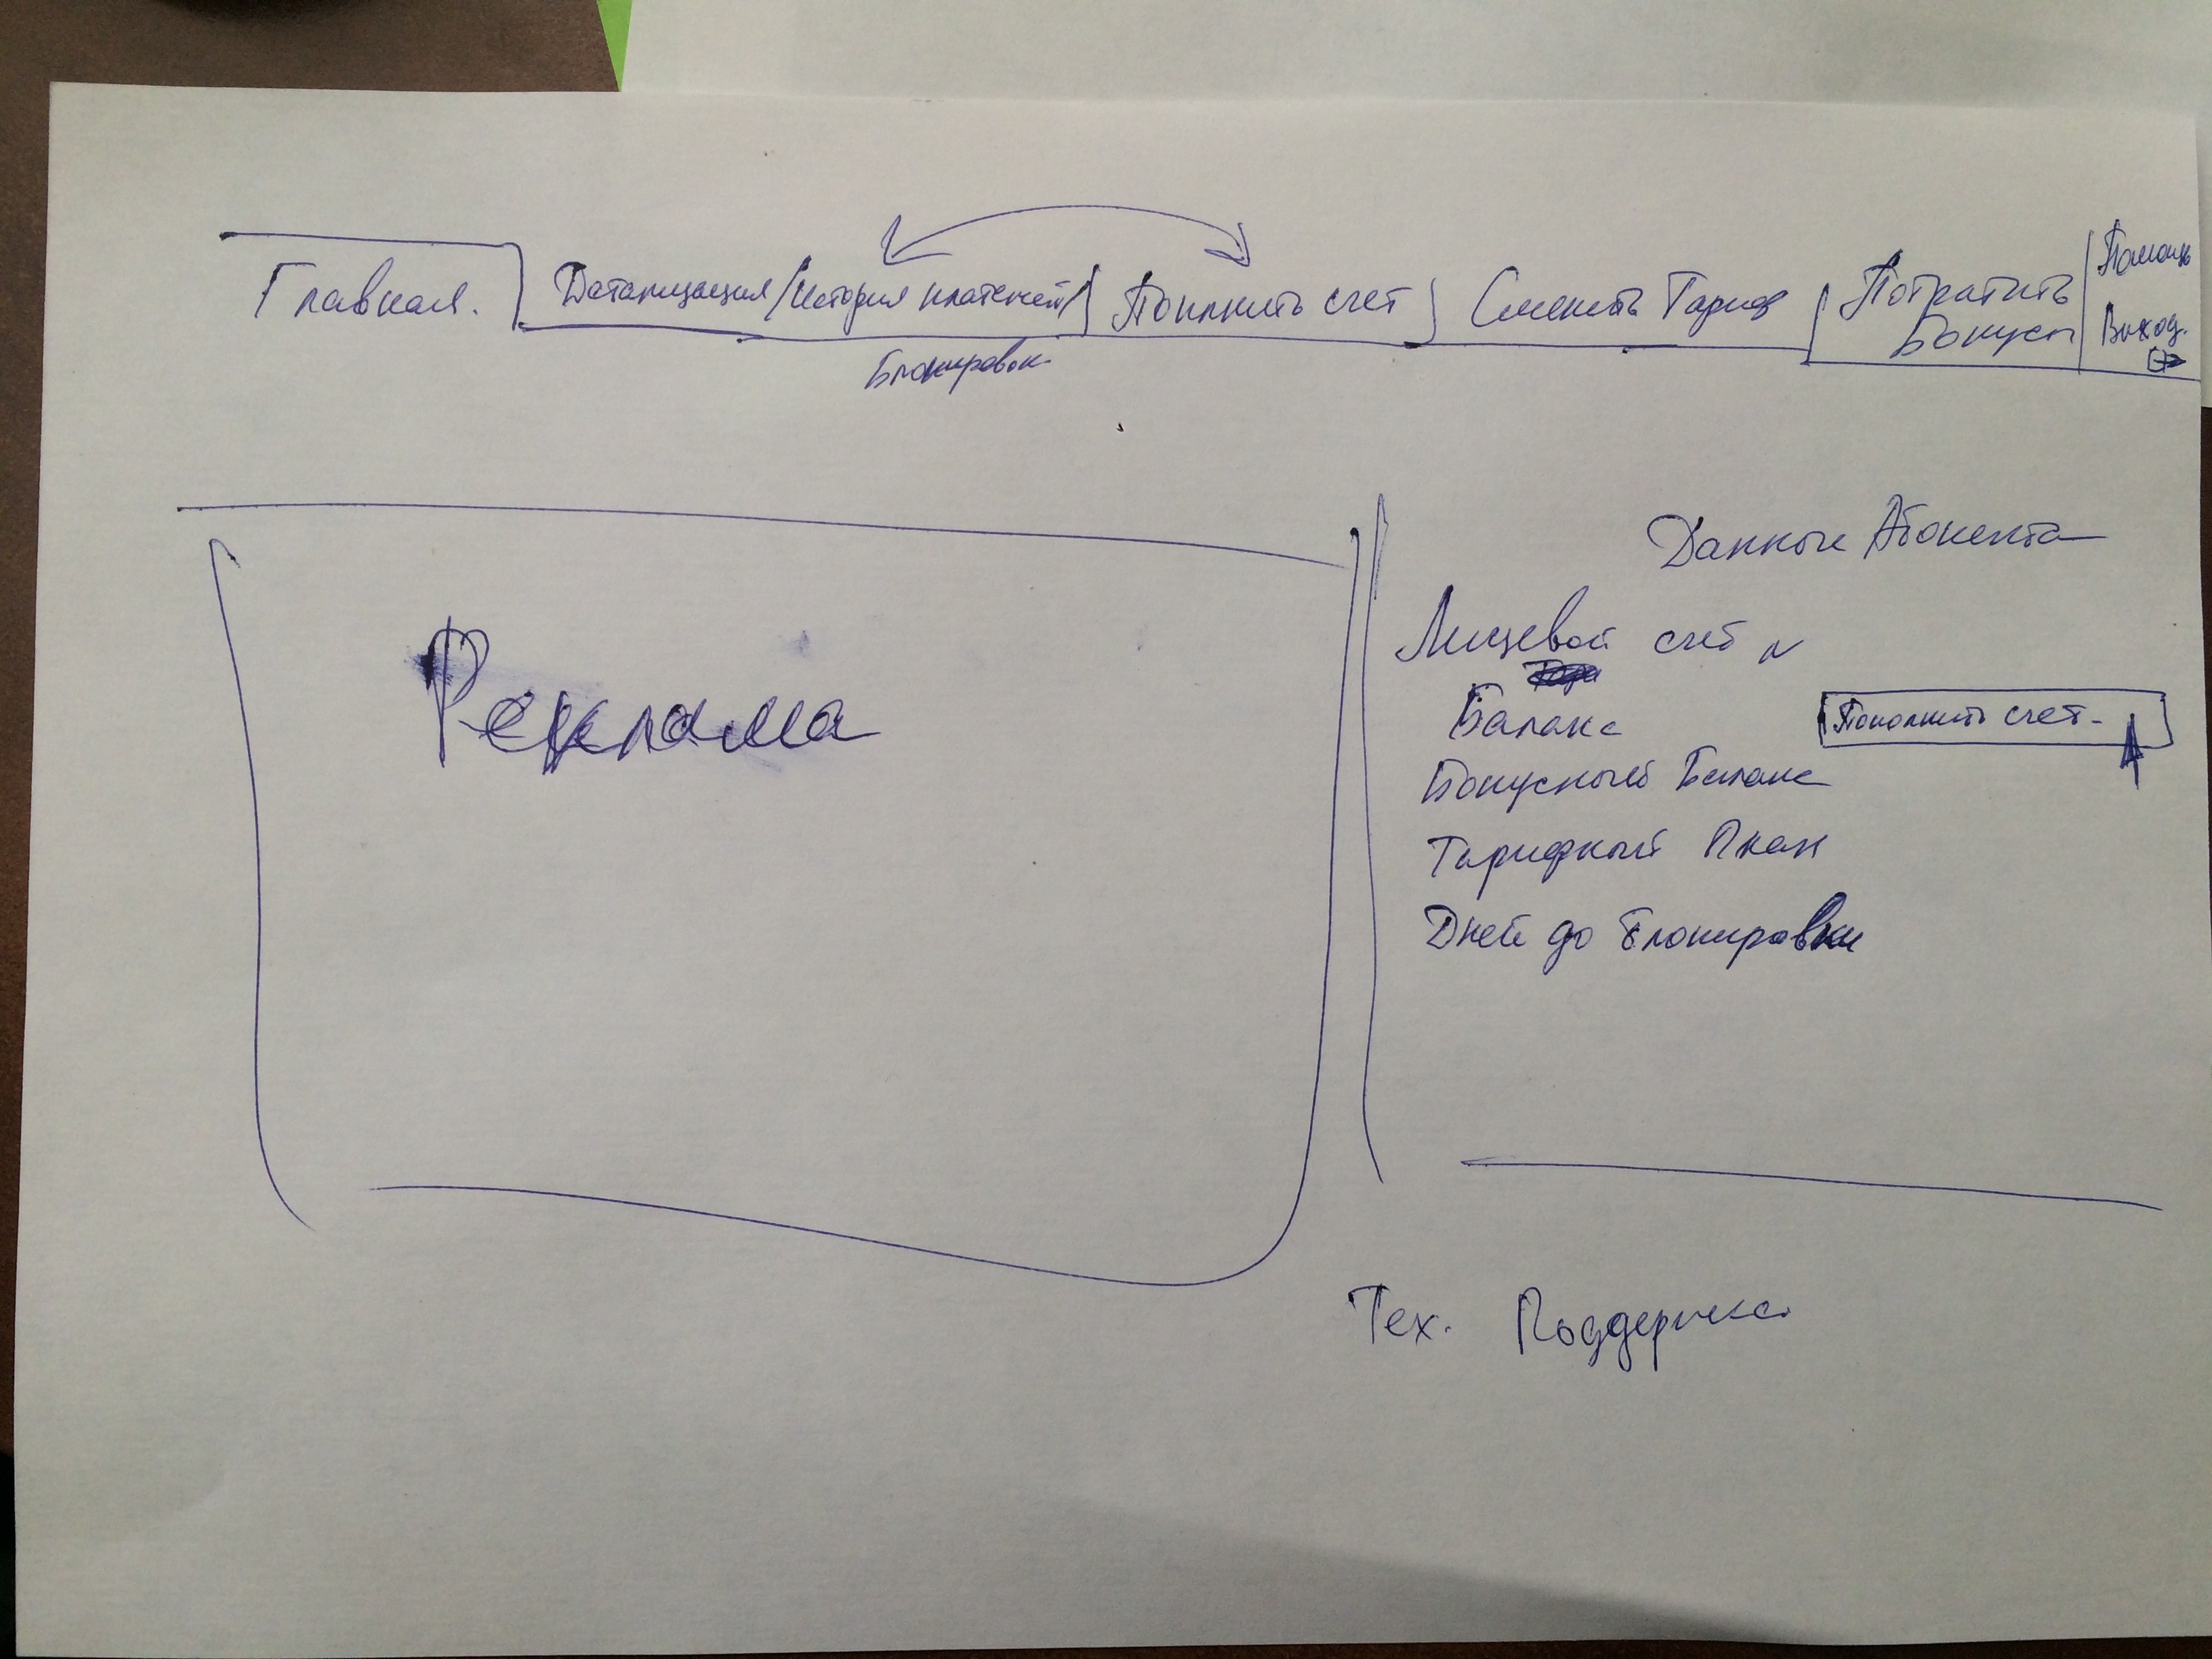 Главная.
Детализация/История платежей/
Блокировок
Пополнить счет
Сменить Тариф
Потратить
Бонусы
Помощь
Выход.
Реклама
Данные Абонента
Лицевой счет №
Баланс
Пополнить счет
Бонусный Баланс
Тарифный План
Дней до блокировки
Тех. Поддержка